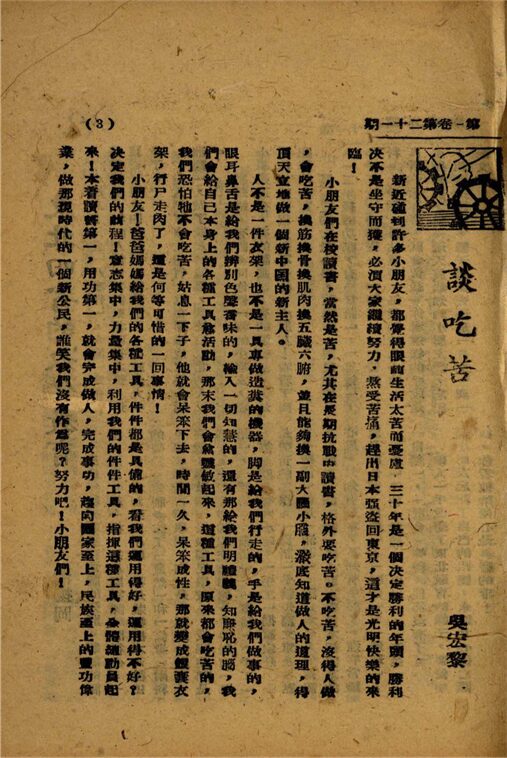 第一卷第二十一期
（3）
談吃苦
吳宏黎
新近碰到許多小朋友，都覺得眼前生活太苦而憂慮，三十年是一個決定勝利的年頭，勝利
決不是坐守而獲，必須大家繼續努力，熬受苦痛，趕出日本強盜回東京，這才是光明快樂的來
臨！
小朋友們在校讀書，當然是苦，尤其在長期抗戰中讀書，格外要吃苦。不吃苦，沒得人做
，會吃苦，換筋換骨換肌肉換五臟六腑，並且能夠換一副大腦小腦，澈底知道做人的道理，得
頂天立地做一個新中國的新主人。
人不是一件衣架，也不是一具專做造糞的機器，脚是給我們行走的，手是給我們做事的，
眼耳鼻舌是給我們辨別色聲香味的，輸入一切知慧的，還有那給我們明禮義，知廉恥的腦，我
們會給自己本身上的各種工具愈活動，那末我們會愈靈敏起來，這種工具，原來都會吃苦的，
我們恐怕牠不會吃苦，姑息一下子，他就會呆笨下去，時間一久，呆笨成性，那就變成飯囊衣
架，行尸走肉了，這是何等可惜的一回事情！
小朋友！爸爸媽媽給我們的各種工具，件件都是具備的，看我們運用得好，運用得不好？
決定我們的前程！意志集中，力量集中，利用我們的件件工具，指揮這種工具，全體總動員起
來！本着讀書第一，用功第一，就會完成做人，完成事功，趨向國家至上，民族至上的豐功偉
業，做那獨時代的一個新公民，誰笑我們沒有作為呢？努力吧！小朋友們！